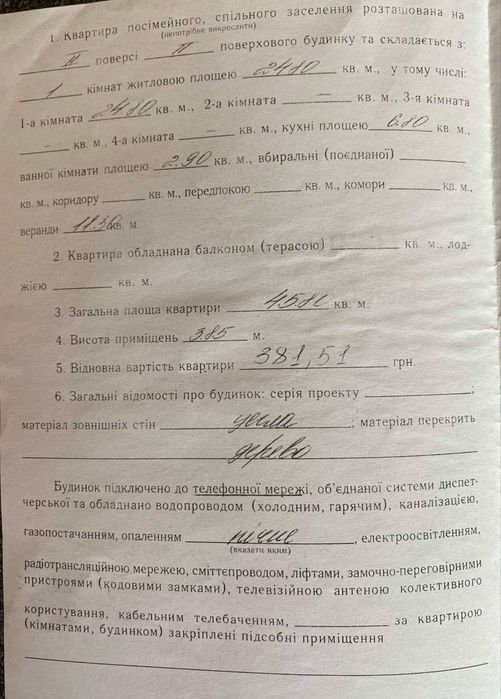 1. Квартира посімейного, спільного заселення розташована на
(непотрібне викреслити)
II поверсі II поверхового будинку та складається з:
1 кімнат житловою площею 24.80 кв. м., у тому числі:
1-а кімната 24.80 кв. м., 2-а кімната — кв. м., 3-я кімната
— кв. м., 4-а кімната — кв. м., кухні площею 6.80 кв. м.,
ванної кімнати площею 2.90 кв. м., вбиральні (поєднаної)
кв. м., коридору кв. м., передпокою кв. м., комори кв. м.,
веранди 11.30 кв. м.
2. Квартира обладнана балконом (терасою) кв. м., лод-
жією кв. м.
3. Загальна площа квартири 45.80 кв. м.
4. Висота приміщень 3.85 м.
5. Відновна вартість квартири 381,51 грн
6. Загальні відомості про будинок: серія проекту ;
матеріал зовнішніх стін цегла ; матеріал перекрить
дерево
Будинок підключено до телефонної мережі, об'єднаної системи диспет-
черської та обладнано водопроводом (холодним, гарячим), каналізацією,
газопостачанням, опаленням пічне , електроосвітленням,
(вказати яким)
радіотрансляційною мережею, сміттєпроводом, ліфтами, замочно-переговірними
пристроями (кодовими замками), телевізійною антеною колективного
користування, кабельним телебаченням, за квартирою
(кімнатами, будинком) закріплені підсобні приміщення